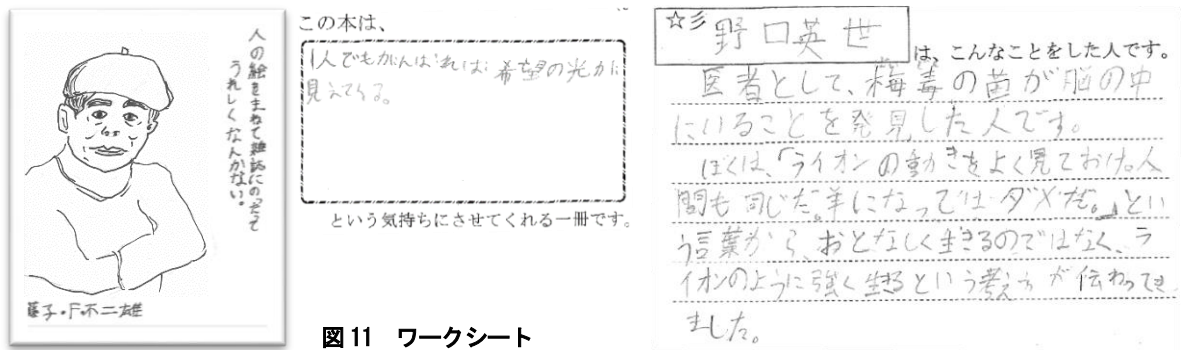 人の絵をまねて雑誌にのったって
うれしくなんかない。
藤子・F・不二雄
この本は、
1人でもがんばれば希望の光が
見えてくる。
という気持ちにさせてくれる一冊です。
図11 ワークシート
☆彡
野口英世
は、こんなことをした人です。
医者として、梅毒の菌が脳の中
にいることを発見した人です。
ぼくは、「ライオンの動きをよく見ておけ。人
間も同じだ。羊になってはダメだ。」とい
う言葉から、おとなしく生きるのではなく、ラ
イオンのように強く生きるという考え方が伝わってき
ました。